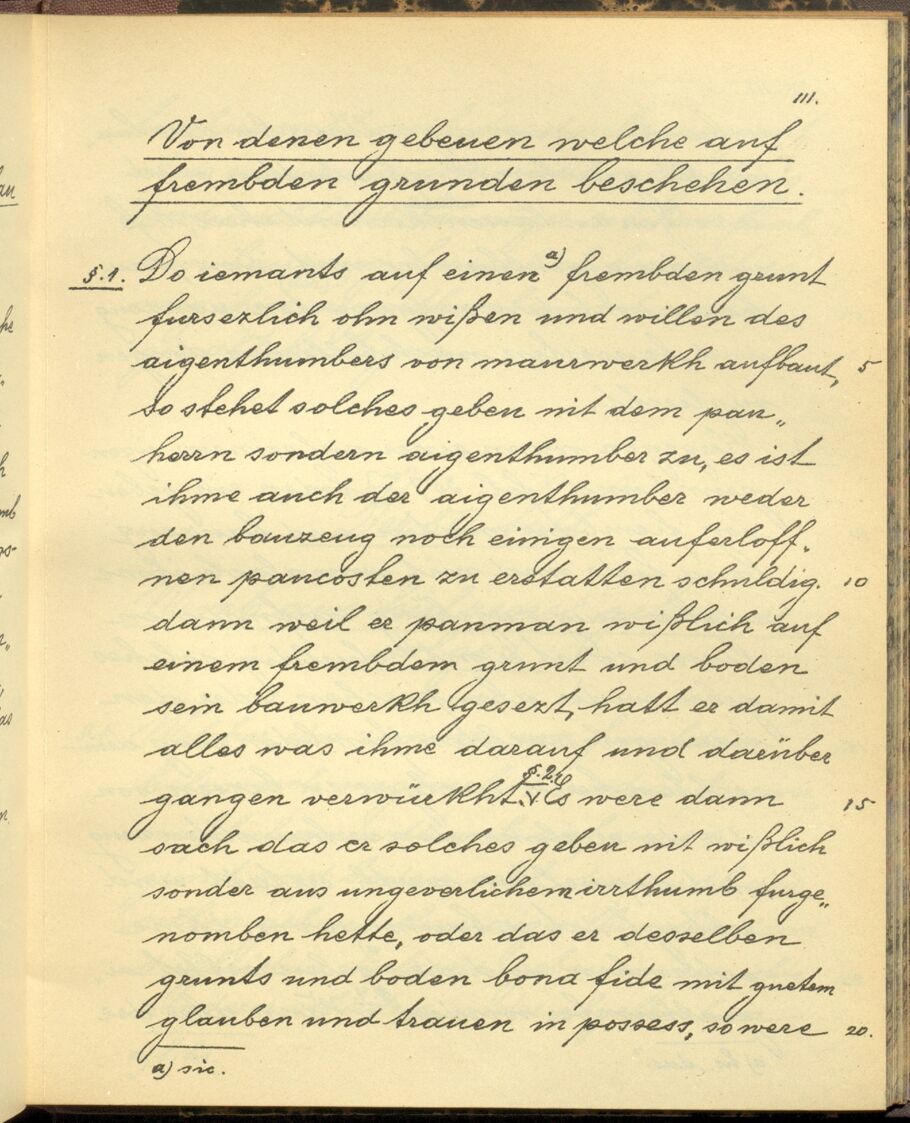 111.
Von denen gebeuen welche auf
frembden grunden beschehen.
§.1. Do iemants auf einen a) frembden grunt
fursezlich ohn wißen und willen des
aigenthumbers von maurwerkh aufbaut, 5
so stehet solches gebeu nit dem pau„
herrn sondern aigenthumber zu, es ist
ihme auch der aigenthumber weder
den bauzeug noch einigen auferloff„
nen paucosten zu erstatten schuldig.  10
dann weil er pauman wißlich auf
einem frembdem grunt und boden
sein bauwerkh gesezt, hatt er damit
alles was ihme darauf und darüber
gangen verwürkht. §.2. Es were dann 15
sach das er solches gebeu nit wißlich
sonder aus ungeverlichem irrthumb furge„
nomben hette, oder das er desselben
grunts und boden bona fide mit guetem
glauben und trauen in possess, so were 20.
a) sic.